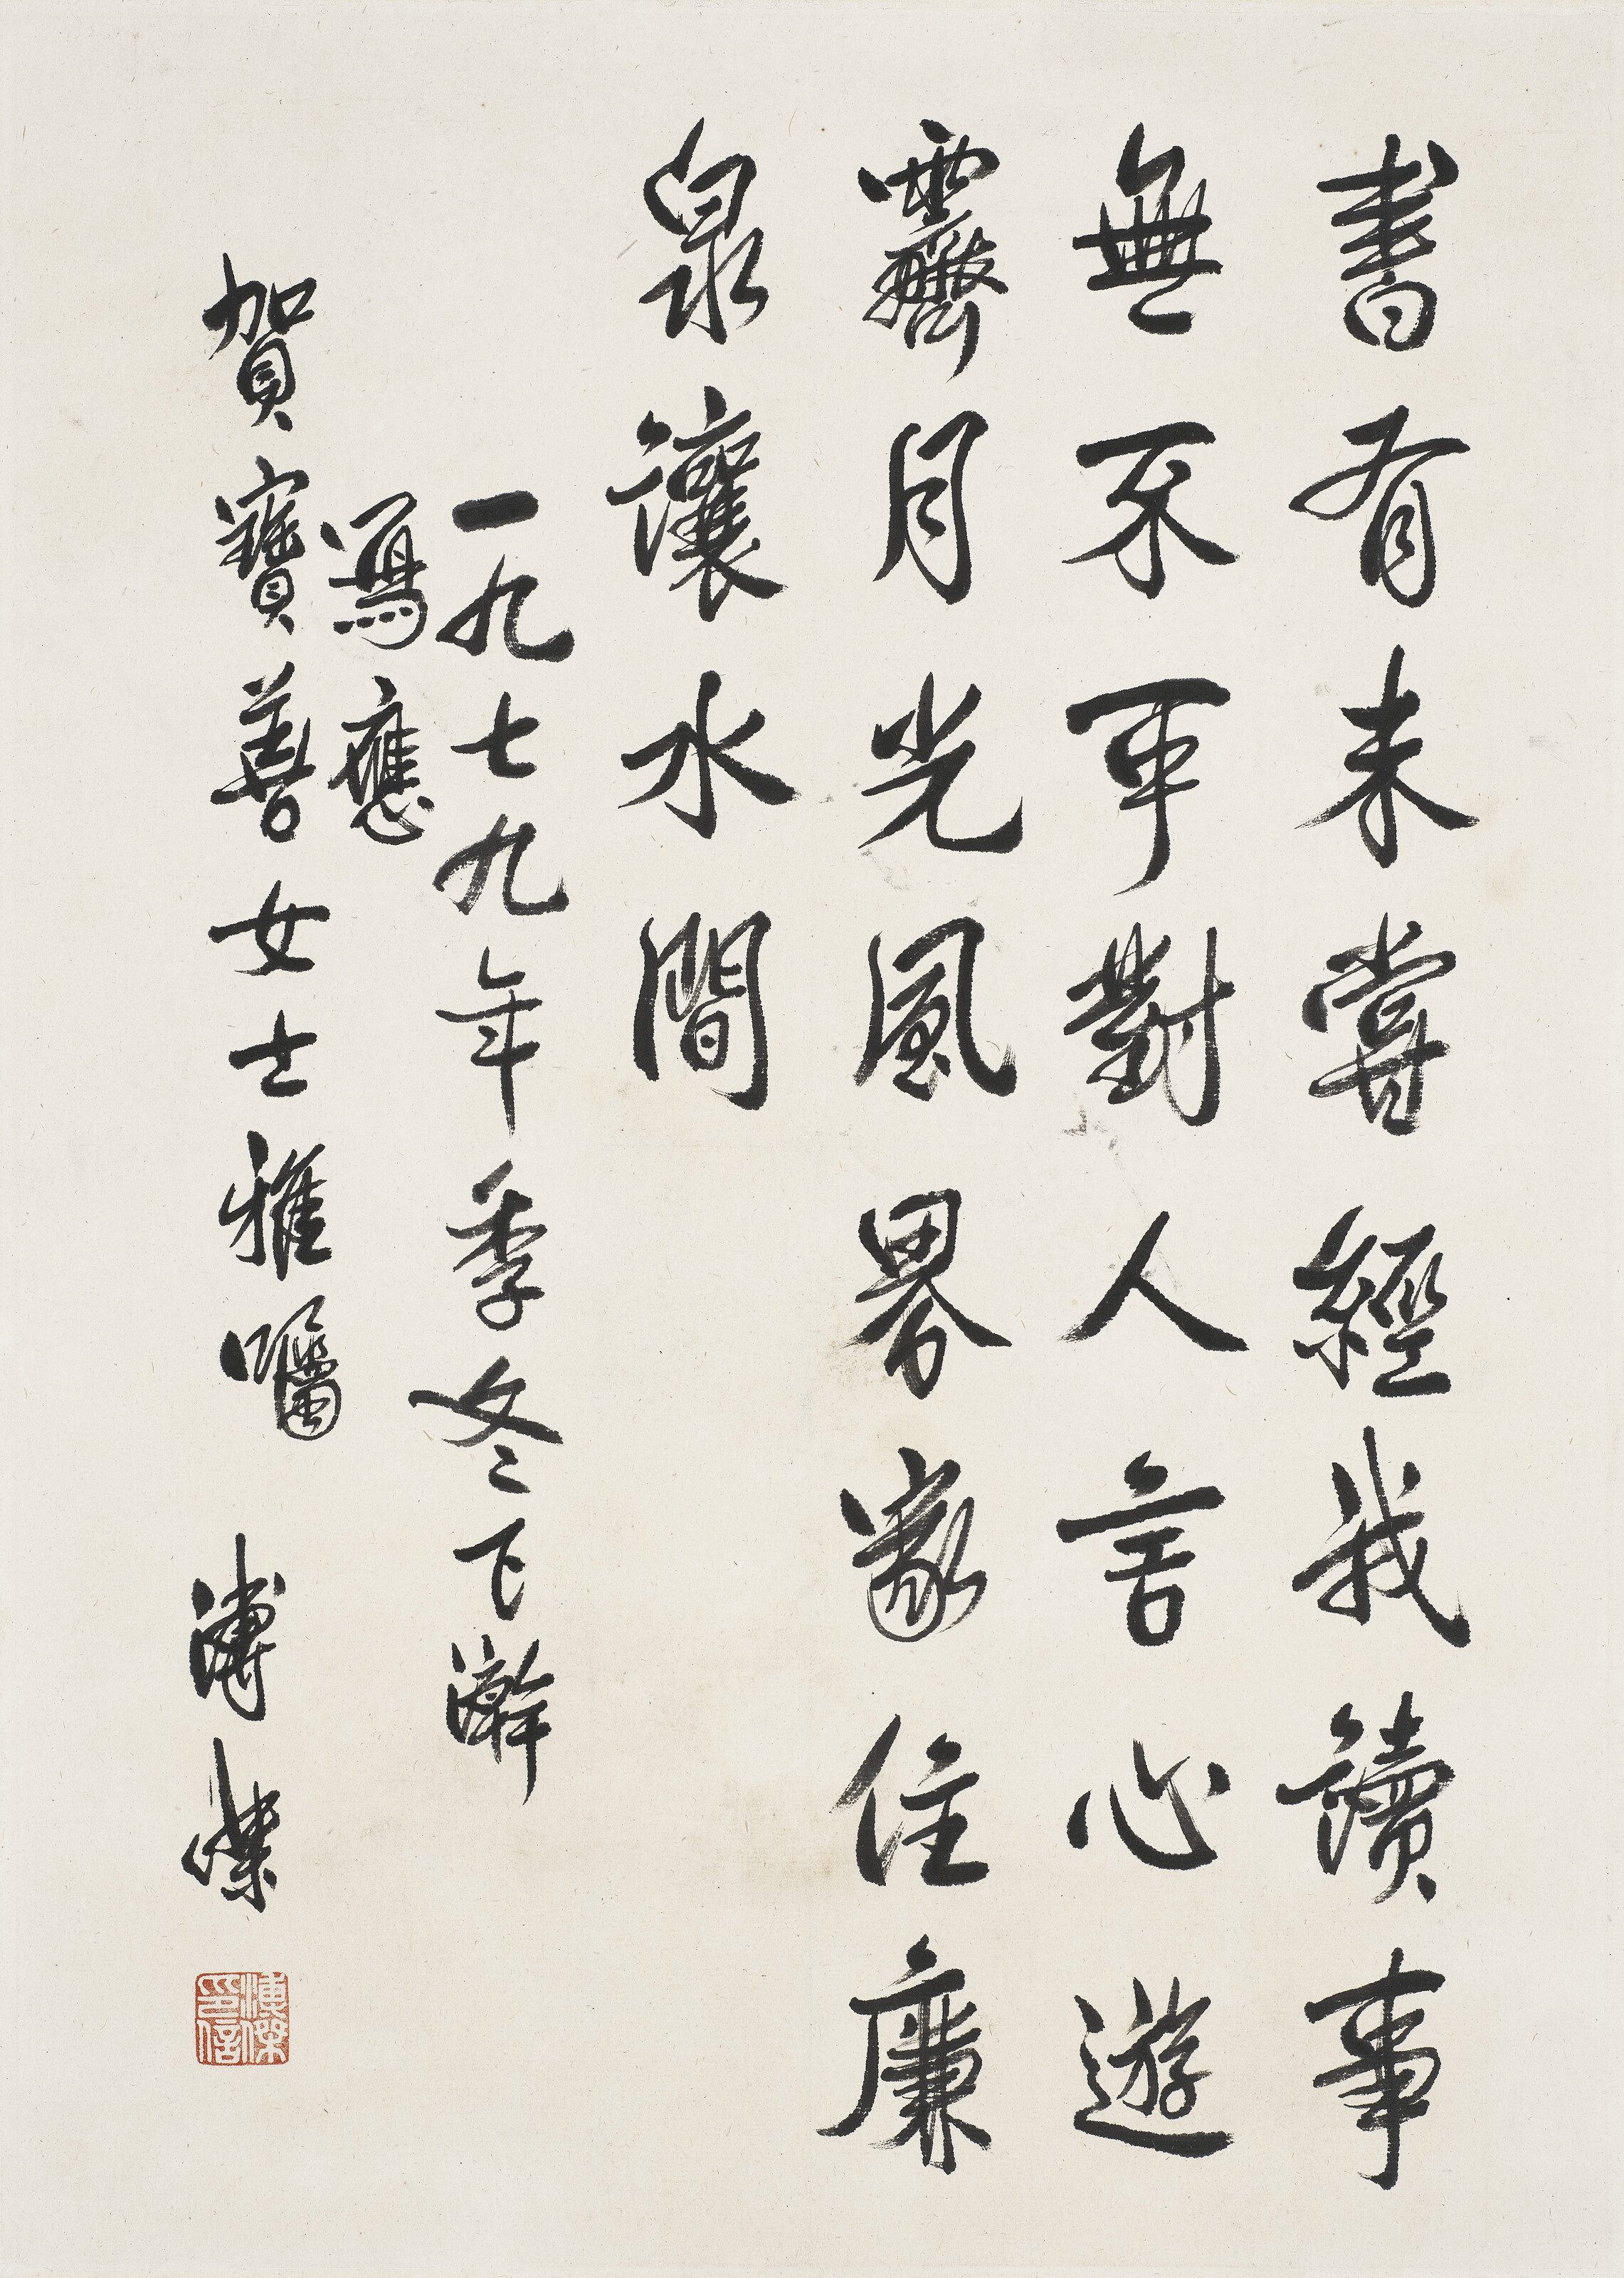 書有未嘗經我讀事
無不可對人言心遊
霽月光風界家住廉
泉讓水間
一九七九年季冬下澣
寫應
賀寶善女士雅囑 溥傑
溥傑印信